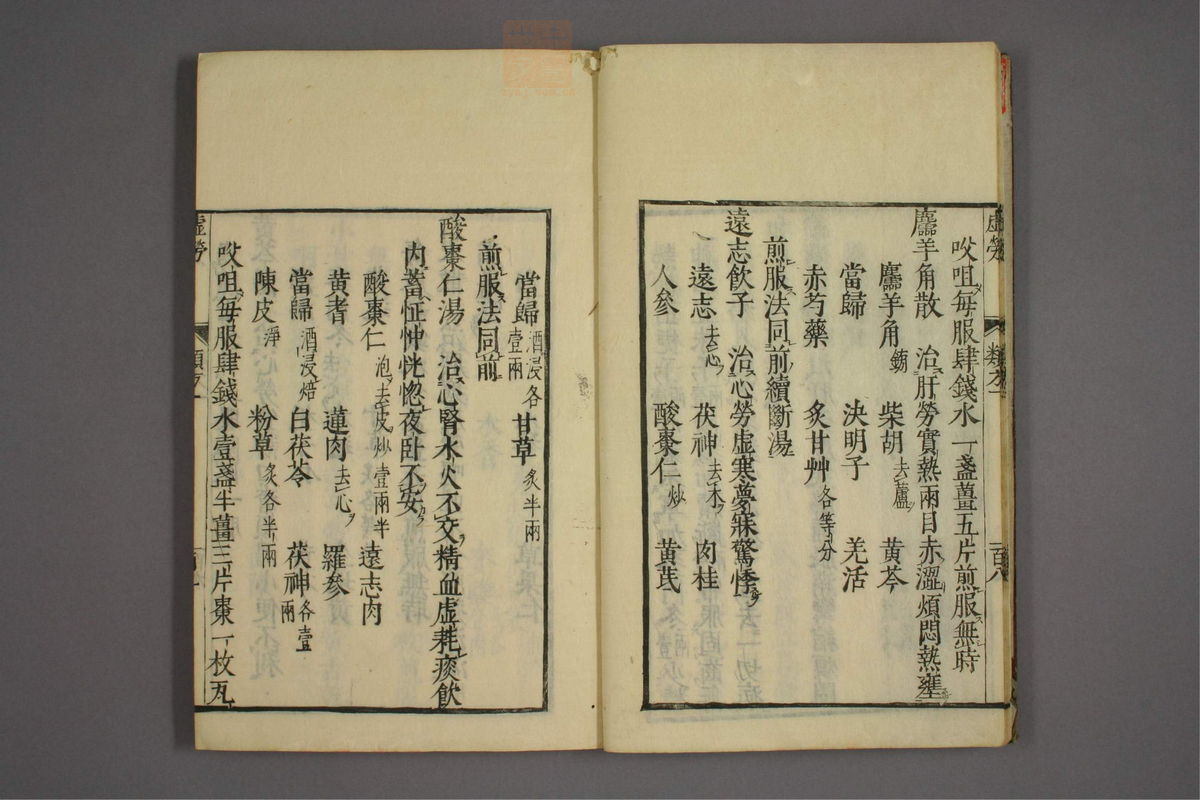 虛勞 類方一 百八
㕮咀每服肆錢水一盞薑五片煎服無時
麢羊角散 治肝勞實熱兩目赤澀煩悶熱壅
麢羊角鎊 柴胡去蘆 黃芩
當歸 決明子 羌活
赤芍藥 炙甘艸各等分
煎服法同前續斷湯
遠志飲子 治心勞虛寒夢寐驚悸
遠志去心 茯神去木 肉桂
人參 酸棗仁炒 黃芪
當歸酒浸各壹兩 甘草炙半兩
煎服法同前
酸棗仁湯 治心腎水火不交精血虛耗痰飲
內蓄怔忡恍惚夜卧不安
酸棗仁泡去皮炒壹兩半 遠志肉
黃耆 蓮肉去心 羅參
當歸酒浸焙 白茯苓 茯神各壹兩
陳皮淨 粉草炙各半兩
㕮咀每服肆錢水壹盞半薑三片棗一枚瓦
虛勞